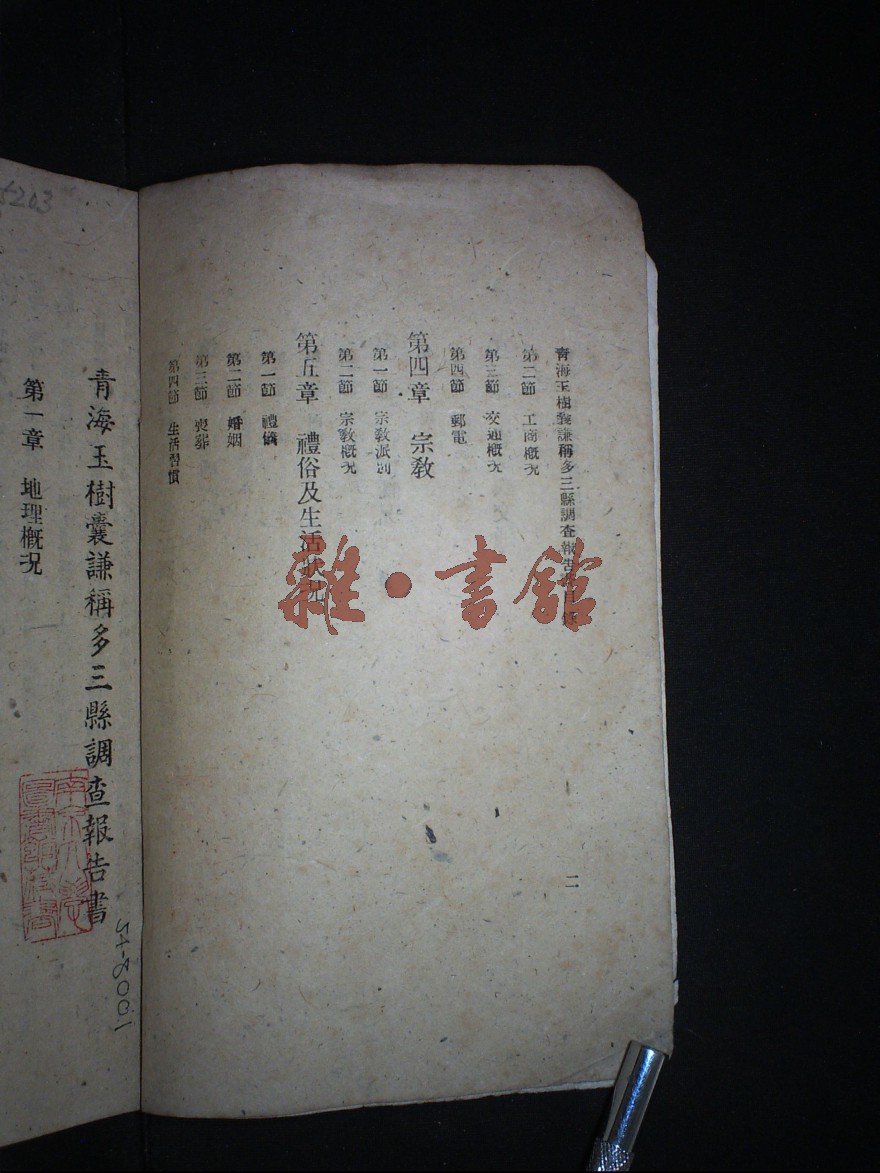 青海玉樹囊謙稱多三縣調查報告書目錄
第二節 工商概况
第三節 交通概况
第四節 郵電
第四章 宗教
第一節 宗教派別
第二節 宗教概况
第五章 禮俗及生活狀況
第一節 禮儀
第二節 婚姻
第三節 喪葬
第四節 生活習慣
二
青海玉樹囊謙稱多三縣調查報告書
第一章 地理概况
5203
54-8001
雜·書館